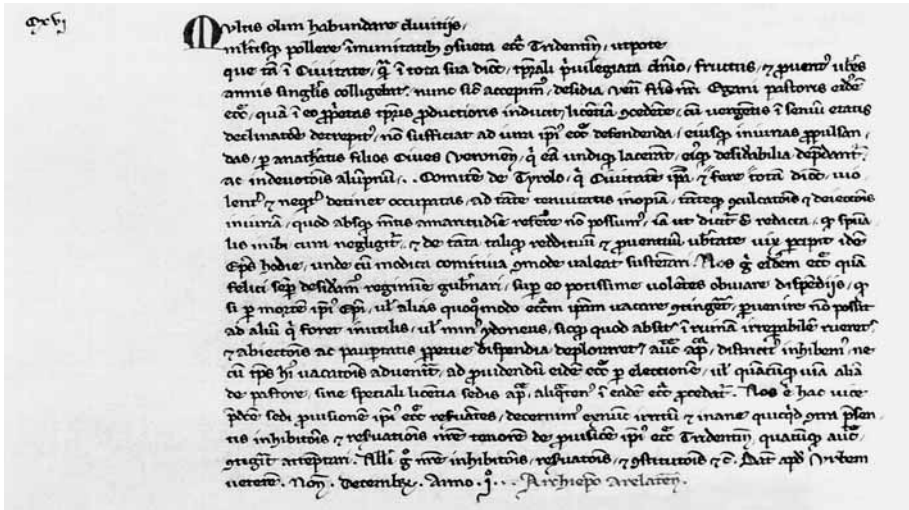 Cxvj
Multis olim habundare divitijs,
multisq; pollere īmunitatib; ꝯsueta eccͣ Tridentiñ, utpote
que tā ī Civitate, qͣ ī tota sua dioc̄, tp̄rali p̄uilegiata dn̄io, fructus, ⁊ ꝓuentꝰ vb̄es
annis singl̄is colligebat, nunc sic̄ accepimꝰ, desidia veñ fr̄is nr̄i Egani pastoris eiusdē
ecc̄, quā ī eo ꝑpetas tp̄ris ꝓductioris induxit, licētia ꝯcedēte, cū vergentis ī seniū etatis
decrepitꝰ, nō sufficiat ad iura ip̄iꝰ ecc̄ defendenda, eiusq; iniurias ꝓpulsan,
das, ꝑ anathētis filios Cives veronen̄, qͥ eā undiq; lacerāt, eiꝰq; desid̄abilia dep̄dant̄,
ac indevotiōis alūpnū, .. Comitē de Tyrolo, qͥ Civitatē ip̄ā, ⁊ fere totā dioc̄, vio
lent̄ ⁊ neqͥt̄ detinet occupatas, ad tāte tenuitatis inopiā, tāteq; ꝯculcatiōis ⁊ deiectiōis
iniuriā, quod absq; m̄tis amaritudīe refer̄e nō possumꝰ, ia ut dicit̄ ē redacta, ꝙ sp̄ua
lis inibi cum negligit̄, ⁊ de tāta taliq; reddituū ⁊ ꝓuentuū ub̄tate vix ꝑcipit idē
Ep̄s hodie, unde cū modica comitiua ꝯmode valeat sustētari. Nos gͥ eidem ecc̄ quā
felici sēp desid̄amꝰ regimine gub̄nari, suꝑ eo potissime volētes obviare dispēdijs, ꝙ
si ꝑ mortē ip̄iꝰ Ep̄i, ul̄ alias quoqͦmodo ecc̄m ip̄am vacare ꝯtinget̄, ꝓuenire nō possit
ad aliū qͥ foret inutilis, ul̄ minꝰ ydoneus, sicq; quod absit ī ruinā irreꝑabilē rueret,
⁊ abiectiōis ac pauꝑtatis ꝑpetue dispendia deploraret, auc̄te ap̄, districtiꝰ inhibemꝰ, ne
cū tp̄s hꝰ vacatōis advenit̄, ad ꝓuidendū eidē ecc̄ ꝑ electionē, ul̄ quācūq; viā aliā
de pastore, sine speciali licētia sedis ap̄, aliqͣten̄ꝰ ī eadē ecc̄ ꝓcedat̄. Nos ē hac vice
p̄dc̄e sedi ꝓuisionē ip̄iꝰ ecc̄ res̄uātes, decernimꝰ exnūc irritū ⁊ inane quicqͥd ꝯtra p̄sen
tis inhibitōis ⁊ res̄uationis nr̄e tenorē de ꝓuisiōe ip̄iꝰ ecc̄ Tridentiñ, quacūq; auc̄te,
ꝯtigit̄ attēptari. Nulli gͥ nr̄e inhibitōis, res̄uatōis, ⁊ ꝯstitutōis ⁊ c̄. Dat̄ apd̄ Urbem
veterē. Noñ. Decembꝶ. Anno .jͦ. .. Archiep̄o Arelateñ.